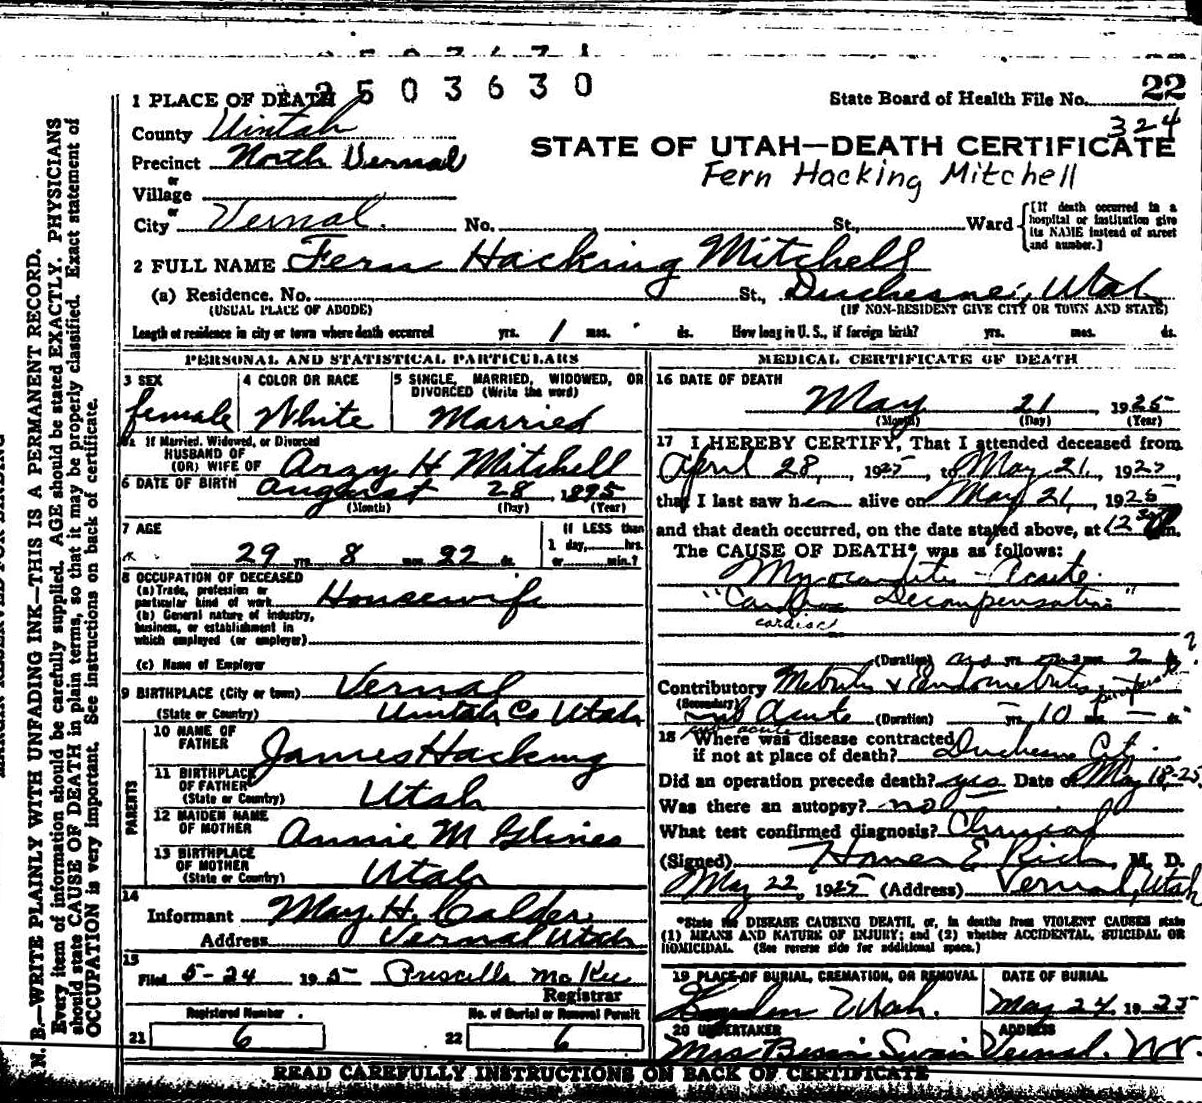 2503630
22
1 PLACE OF DEATH
State Board of Health File No.
324
County Uintah
STATE OF UTAH—DEATH CERTIFICATE
Precinct North Vernal
Fern Hacking Mitchell
or
Village
or
City Vernal. No. St., Ward
[If death occurred in a hospital or institution give its NAME instead of street and number.]
2 FULL NAME Fern Hacking Mitchell
(a) Residence. No. St., Duchesne, Utah
(USUAL PLACE OF ABODE) (IF NON-RESIDENT GIVE CITY OR TOWN AND STATE)
Length of residence in city or town where death occurred yrs. 1 mos. ds. How long in U. S., if foreign birth? yrs. mos. ds.
PERSONAL AND STATISTICAL PARTICULARS
3 SEX 4 COLOR OR RACE 5 SINGLE, MARRIED, WIDOWED, OR DIVORCED (Write the word)
female White Married
5a If Married, Widowed, or Divorced
HUSBAND OF
(OR) WIFE OF Arzy H Mitchell
6 DATE OF BIRTH August 28, 1895
(Month) (Day) (Year)
7 AGE If LESS than
29 yrs. 8 mos. 22 ds. 1 day,......hrs. or......min.?
8 OCCUPATION OF DECEASED
(a) Trade, profession or particular kind of work Housewife
(b) General nature of industry, business, or establishment in which employed (or employer)
(c) Name of Employer
9 BIRTHPLACE (City or town) Vernal
(State or Country) Uintah Co Utah
PARENTS
10 NAME OF FATHER James Hacking
11 BIRTHPLACE OF FATHER (State or Country) Utah
12 MAIDEN NAME OF MOTHER Annie M Glines
13 BIRTHPLACE OF MOTHER (State or Country) Utah
14
Informant May H. Calder
Address Vernal Utah
15
Filed 5-24 1925 Priscilla McKee
Registrar
Registered Number No. of Burial or Removal Permit
21 6 22 6
MEDICAL CERTIFICATE OF DEATH
16 DATE OF DEATH
May 21, 1925
(Month) (Day) (Year)
17 I HEREBY CERTIFY, That I attended deceased from
April 28, 1925, to May 21, 1925,
that I last saw her alive on May 21, 1925
and that death occurred, on the date stated above, at 12 m.
The CAUSE OF DEATH* was as follows:
Myocarditis - Acute.
"Cardiac Decompensation"
cardiac
(Duration) yrs. mos. 2
Contributory Metritis & Endometritis
(Secondary) sub Acute (Duration) - yrs. 10 mos. - ds.
sub acute
18 Where was disease contracted
if not at place of death? Duchesne
Did an operation precede death? yes Date of May 18-25
Was there an autopsy? no
What test confirmed diagnosis? Clinical
(Signed) Homer E Rich, M. D.
May 22, 1925 (Address) Vernal, Utah
*State the DISEASE CAUSING DEATH, or, in deaths from VIOLENT CAUSES state
(1) MEANS AND NATURE OF INJURY; and (2) whether ACCIDENTAL, SUICIDAL OR
HOMICIDAL. (See reverse side for additional space.)
19 PLACE OF BURIAL, CREMATION, OR REMOVAL DATE OF BURIAL
Utah. May 24, 1925
20 UNDERTAKER ADDRESS
Mrs Bessie Swain Vernal.
READ CAREFULLY INSTRUCTIONS ON BACK OF CERTIFICATE
N. B.—WRITE PLAINLY WITH UNFADING INK—THIS IS A PERMANENT RECORD.
Every item of information should be carefully supplied. AGE should be stated EXACTLY. PHYSICIANS
should state CAUSE OF DEATH in plain terms, so that it may be properly classified. Exact statement of
OCCUPATION is very important. See instructions on back of certificate.